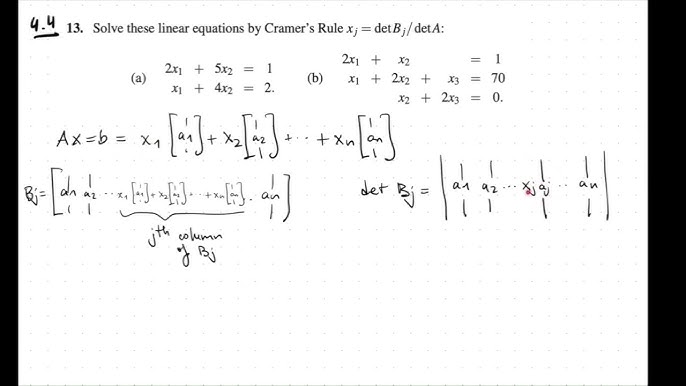 4.4 13. Solve these linear equations by Cramer's Rule x_j = det B_j / det A:
(a) 2x₁ + 5x₂ = 1
x₁ + 4x₂ = 2.
(b) 2x₁ + x₂ = 1
x₁ + 2x₂ + x₃ = 70
x₂ + 2x₃ = 0.
Ax = b = x₁ [a₁] + x₂ [a₂] + ... + xₙ [aₙ]
B_j = [a₁ a₂ ... x₁ [a₁] + x₂ [a₂] + ... + xₙ [aₙ] . aₙ]
jth column
of B_j
det B_j = | a₁ a₂ ... x_j a_j .. aₙ |